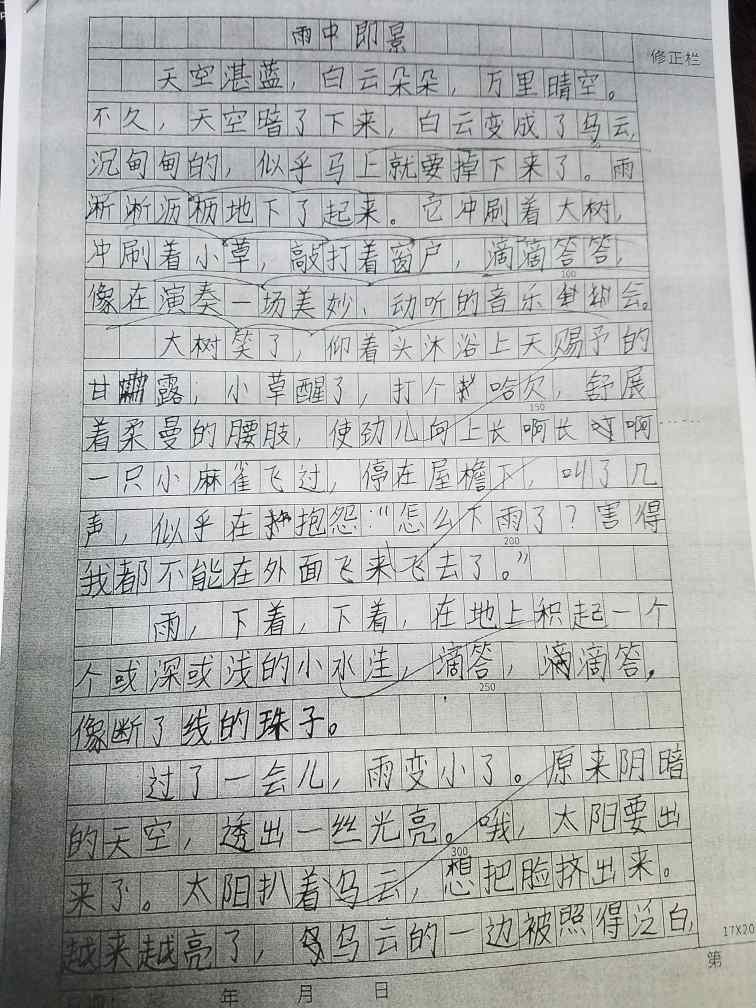 雨中即景
修正栏
天空湛蓝，白云朵朵，万里晴空。
不久，天空暗了下来，白云变成了乌云，
沉甸甸的，似乎马上就要掉下来了。雨
淅淅沥沥地下了起来。它冲刷着大树，
冲刷着小草，敲打着窗户，滴滴答答，
100
像在演奏一场美妙、动听的音乐会。
大树笑了，仰着头沐浴上天赐予的
甘露；小草醒了，打个哈欠，舒展
150
着柔曼的腰肢，使劲儿向上长啊长啊
一只小麻雀飞过，停在屋檐下，叫了几
声，似乎在抱怨：“怎么下雨了？害得
200
我都不能在外面飞来飞去了。”
雨，下着，下着，在地上积起一个
个或深或浅的小水洼，滴答，滴滴答，
250
像断了线的珠子。
过了一会儿，雨变小了。原来阴暗
的天空，透出一丝光亮。哦，太阳要出
300
来了。太阳扒着乌云，想把脸挤出来。
越来越亮了，乌云的一边被照得泛白，
17X20
年 月 日
第